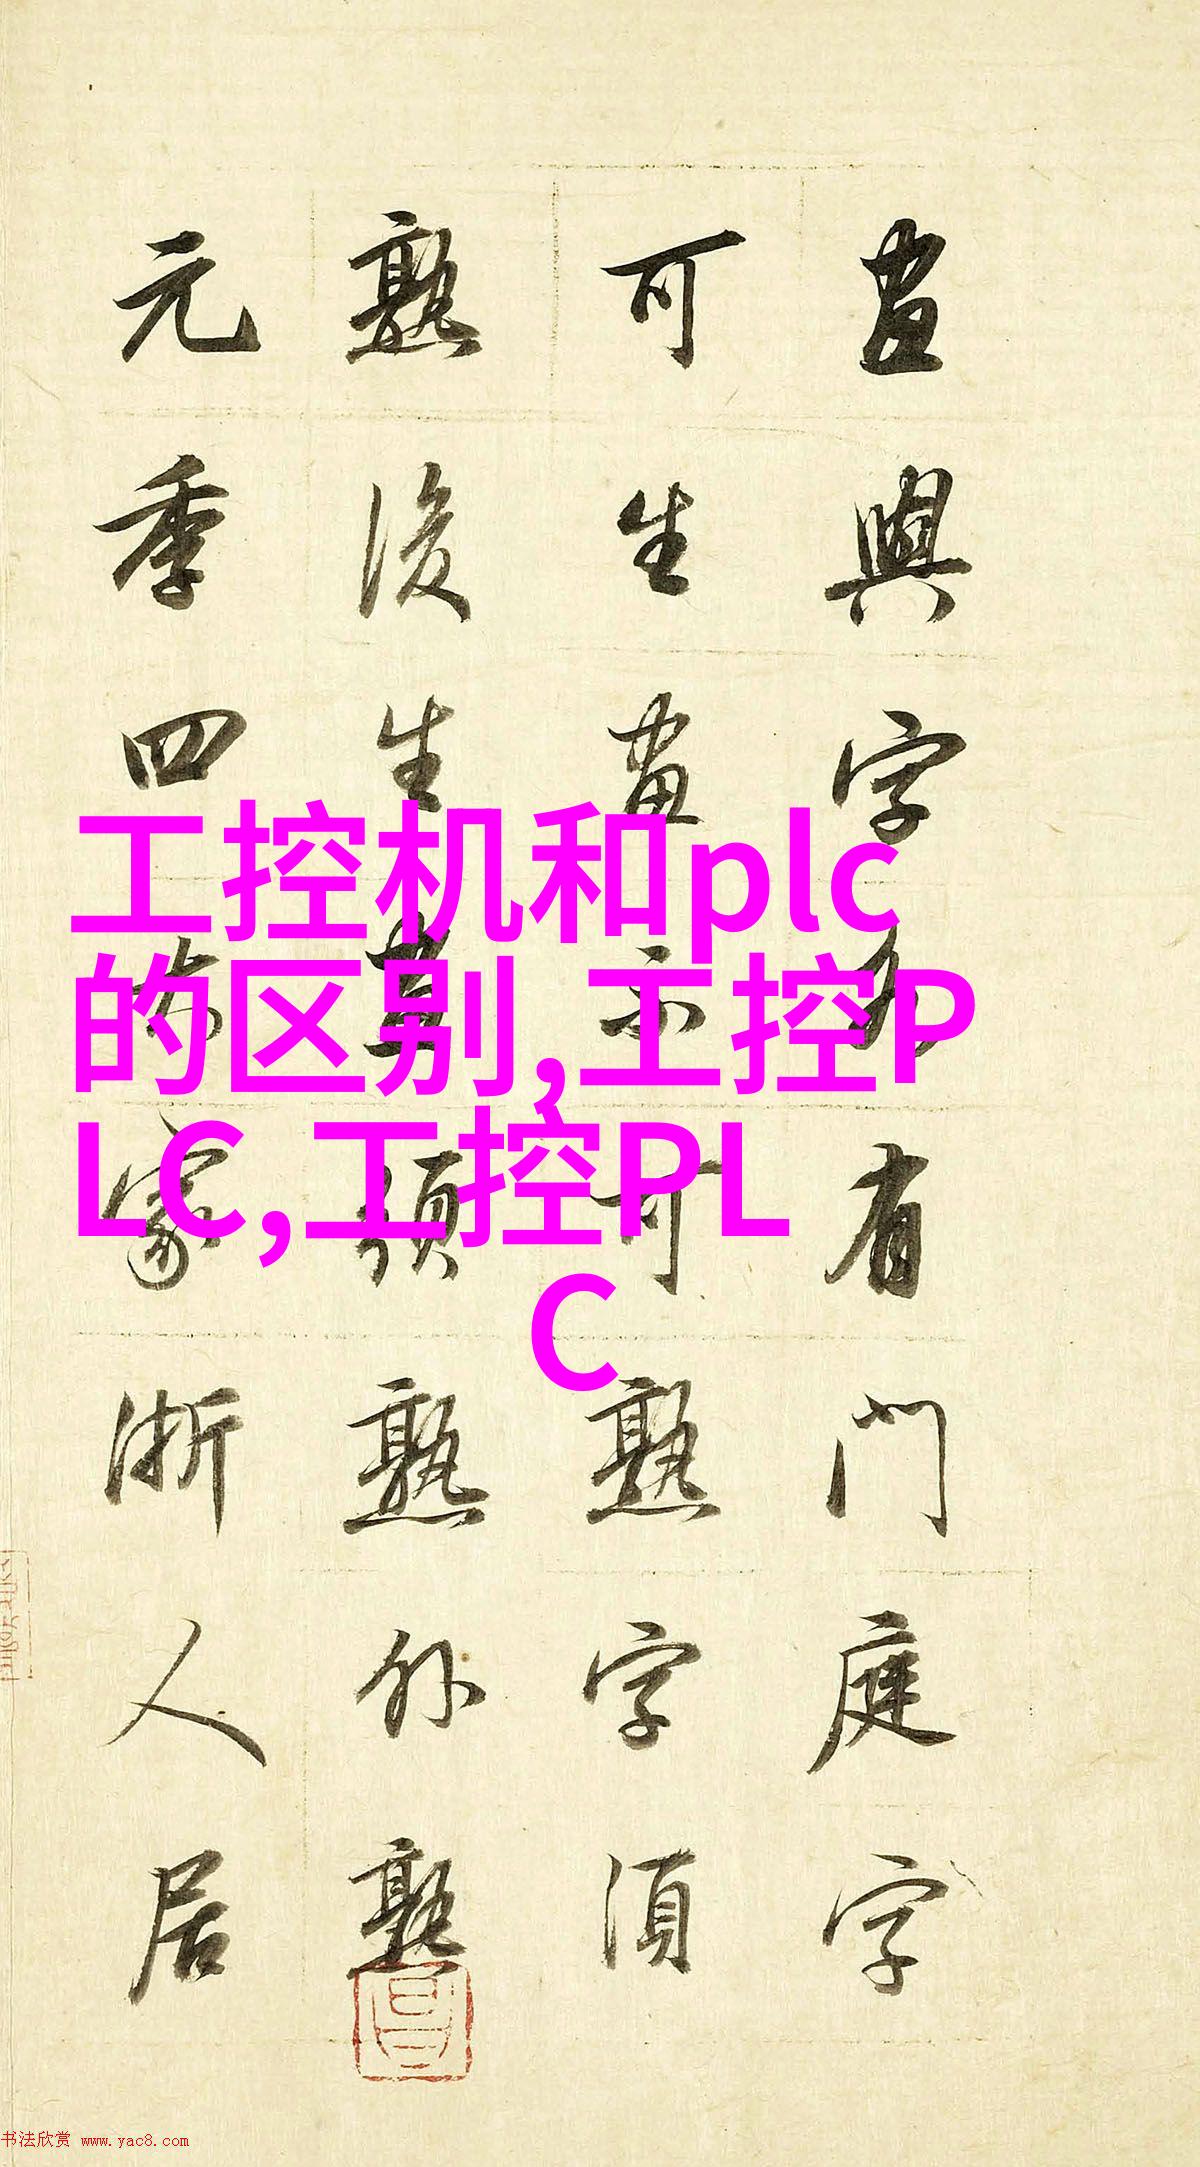 畫與字各有門庭字
可生畫不可熟字須
熟後生畫須熟外熟
元季四大家浙人居
工控机和plc
的区别,工控P
LC,工控PL
C
书法欣赏 www.yac8.com